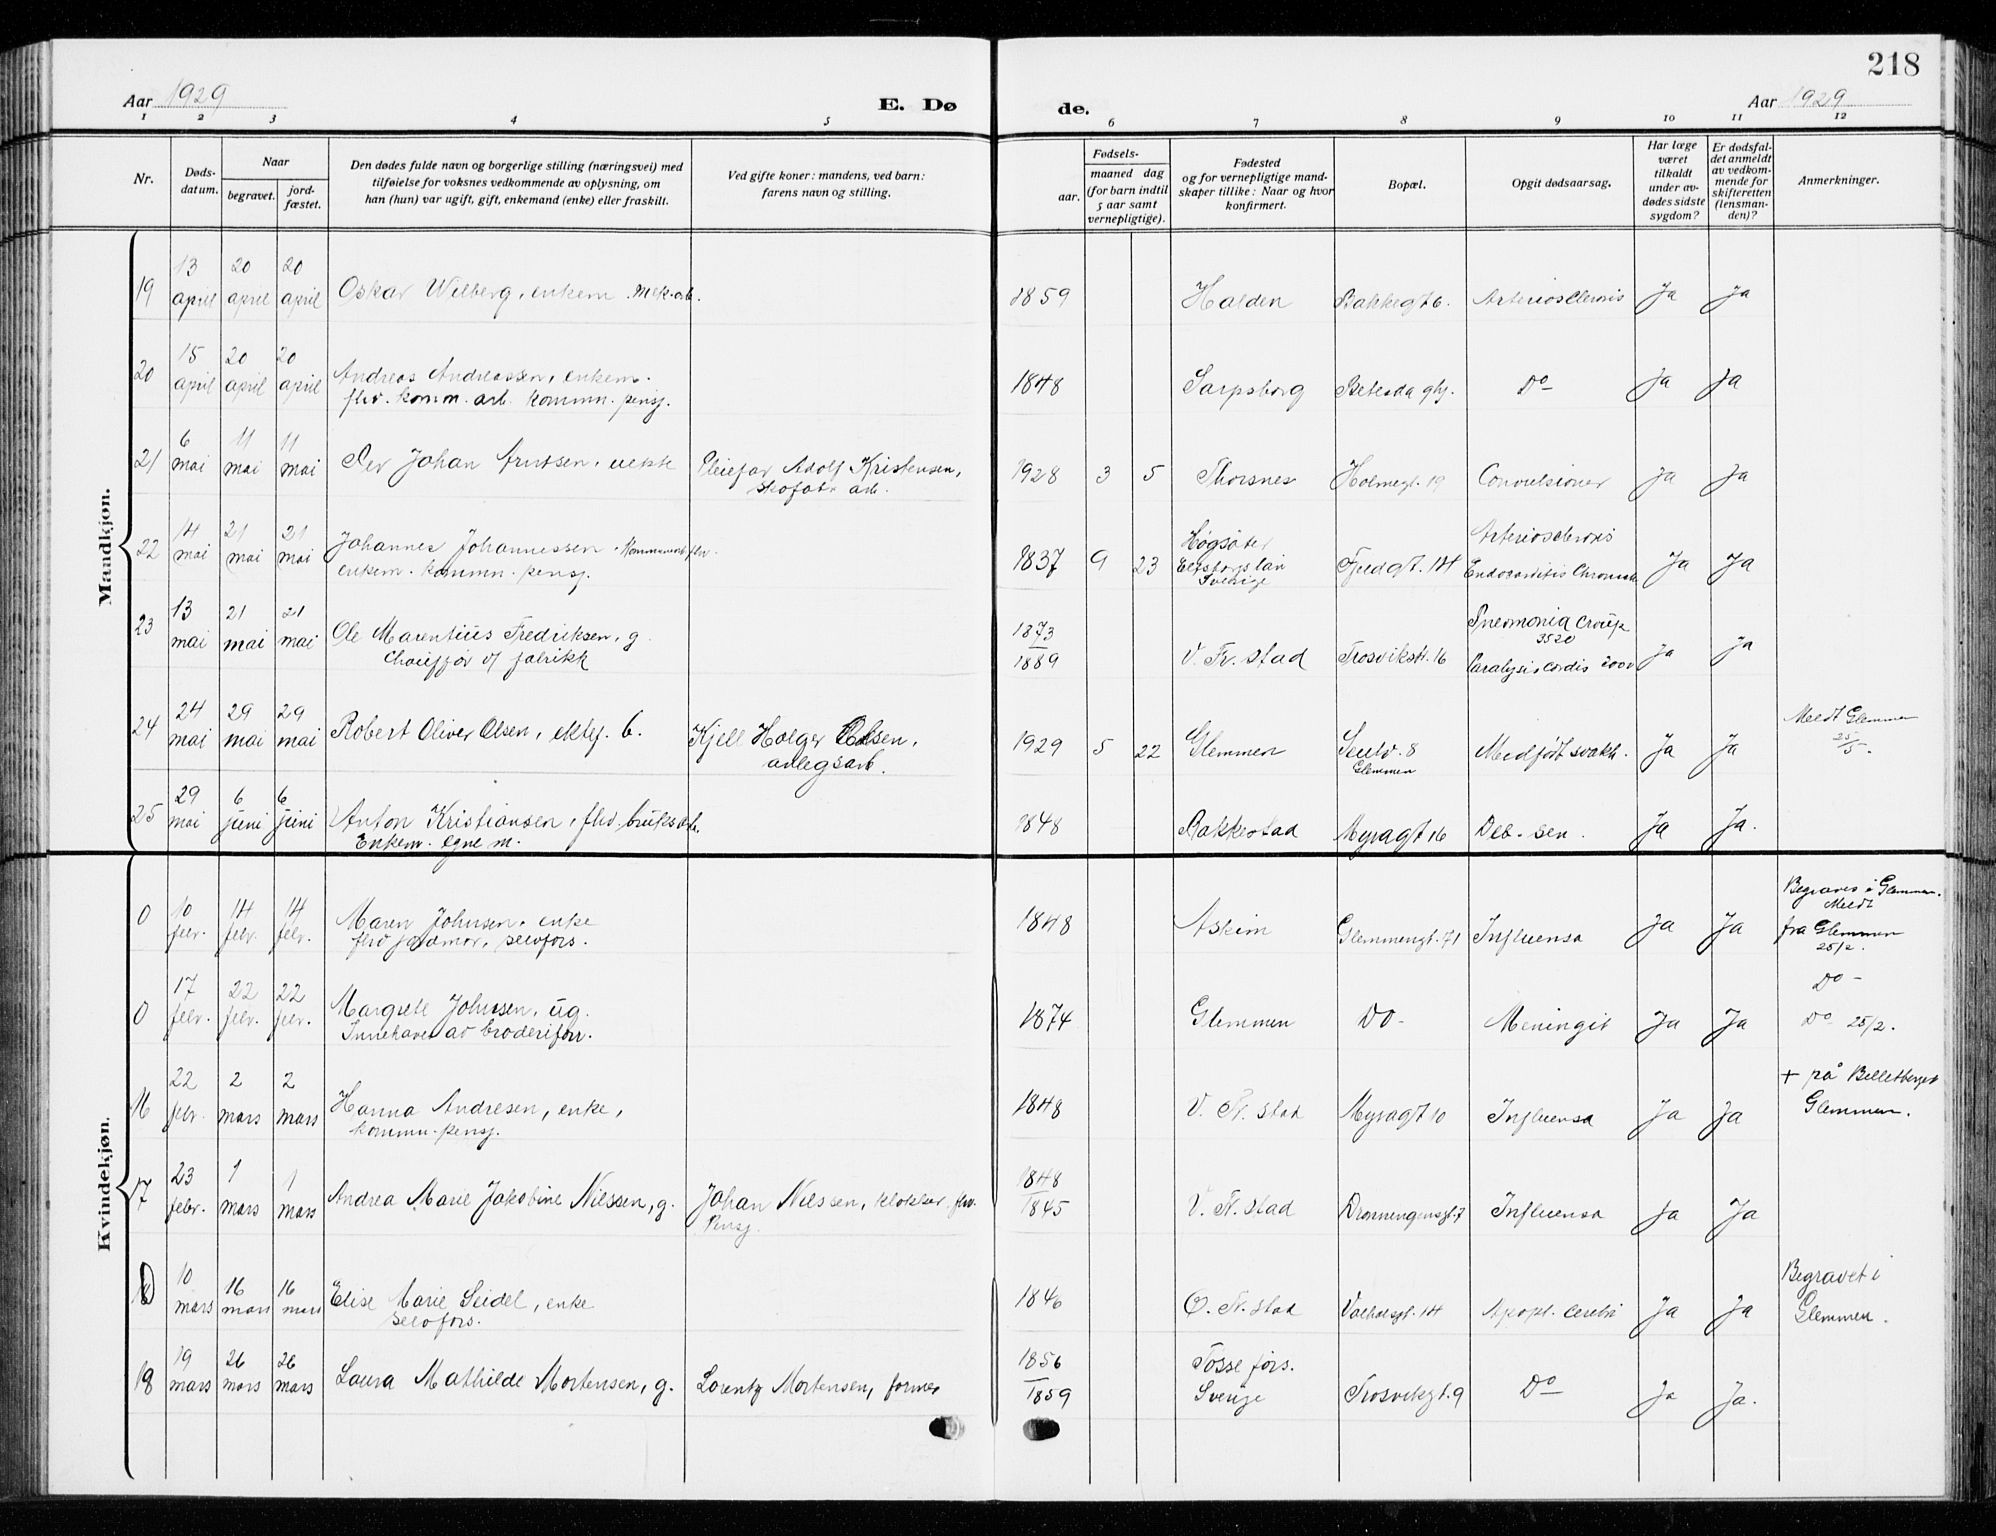 218
Aar 1929
E. Dø de.
Aar 1929
1 2 3 4 5 6 7 8 9 10 11 12
Nr.
Døds-
datum.
Naar
begravet.
jord-
fæstet.
Den dødes fulde navn og borgerlige stilling (næringsvei) med
tilføielse for voksnes vedkommende av oplysning, om
han (hun) var ugift, gift, enkemand (enke) eller fraskilt.
Ved gifte koner: mandens, ved barn:
farens navn og stilling.
Fødsels-
aar.
maaned dag
(for barn indtil
5 aar samt
vernepligtige).
Fødested
og for vernepligtige mand-
skaper tillike: Naar og hvor
konfirmert.
Bopæl.
Opgit dødsaarsag.
Har læge
været
tilkaldt
under av-
dødes sidste
sygdom?
Er dødsfal-
det anmeldt
av vedkom-
mende for
skifteretten
(lensman-
den)?
Anmerkninger.
Mandkjøn.
19 13 april 20 april 20 april Oskar Wilberg, enkem. mek. arb. 1859 Halden Bakkegt 6. Arteriosclerosis Ja Ja
20 15 april 20 april 20 april Andreas Andreassen, enkem.
fhv. komm. arb. kommn. pensj. 1848 Sarpsborg Betesda ghj. Do Ja Ja
21 6 mai 11 mai 11 mai Per Johan uekte Pleiefar Adolf Kristensen,
skofabr. arb. 1928 3 5 Thorsnes Holmegt. 19 Convulsioner Ja Ja
22 14 mai 21 mai 21 mai Johannes Johannessen. fhv.
enkem. kommn. pensj. 1837 9 23 Høgsäter
Elfsborgs län
Sverige 144 Arteriosclerosis
Endocarditis Chronica Ja Ja
23 13 mai 21 mai 21 mai Ole Marentius Fredriksen, g.
Chauffør v/ fabrikk 1873
1889 V. Fr. stad Trosvikstr. 16 Pneomonia Croup.
3520
Paralysis cordis 2000 Ja Ja
24 24 mai 29 mai 29 mai Robert Oliver Olsen, ektef. b. Kjell Holger Olsen,
anlegsarb. 1929 5 22 Glemmen 8
Glemmen Medfødt svakh. Ja Ja Meldt Glemmen
25/5.
25 29 mai 6 juni 6 juni Anton Kristiansen, fhv. bruksarb.
Enkem. egne m. 1848 Rakkestad Myragt 16 Deb. sen. Ja Ja.
Kvindekjøn.
0 10 febr. 14 febr. 14 febr. Maren Johnsen. enke
fhv jordmor, selvfors. 1848 Askim Glemmengt. 71 Influensa Ja Ja Begraves i Glemmen.
Meldt
fra Glemmen
25/2.
0 17 febr. 22 febr. 22 febr. Margrete Johnsen, ug.
Innehaver av broderiforr. 1874 Glemmen DO- Meningit Ja Ja Do -
Do 25/2.
16 22 febr. 2 mars 2 mars Hanna Andresen, enke,
kommn. pensj. 1848 V. Fr. stad Myragt 10 Influensa Ja Ja + på
Glemmen.
17 23 febr. 1 mars 1 mars Andrea Marie Jakobine Nilssen, g. Johan Nilssen, klokker. fhv.
Pensj. 1848
1845 V. Fr. stad Dronningensgt. 7 Influensa Ja Ja
0 10 mars 16 mars 16 mars Elise Marie Seidel, enke
selvfors. 1846 Ø. Fr. stad 144 Apopl. Cerebri Ja Ja Begravet i
Glemmen.
18 19 mars 26 mars 26 mars Laura Mathilde Mortensen, g. Lorentz Mortensen, former 1856
1859 Tosse förs.
Sverige Trosvikgt. 9 Do Ja Ja.